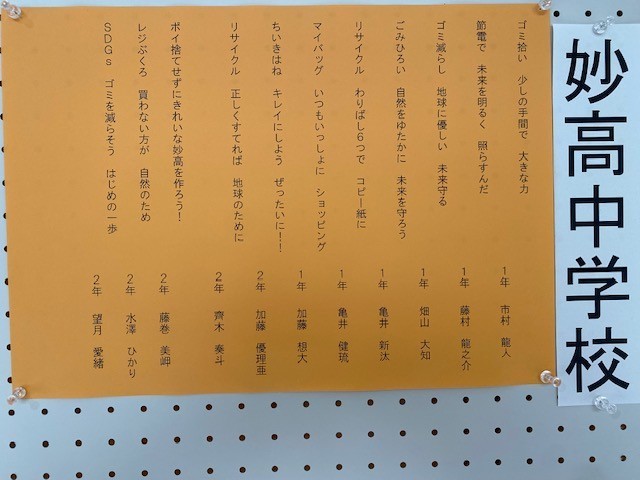 妙高中学校
ゴミ拾い　少しの手間で　大きな力
1年　市村　龍人
節電で　未来を明るく　照らすんだ
1年　藤村　龍之介
ゴミ減らし　地球に優しい　未来守る
1年　畑山　大知
ごみひろい　自然をゆたかに　未来を守ろう
1年　亀井　新汰
リサイクル　わりばし6つで　コピー紙に
1年　亀井　健琉
マイバッグ　いつもいっしょに　ショッピング
1年　加藤　想大
ちいきはね　キレイにしよう　ぜったいに!!
2年　加藤　優理亜
リサイクル　正しくすてれば　地球のために
2年　齊木　奏斗
ポイ捨てせずにきれいな妙高を作ろう!
2年　藤巻　美岬
レジぶくろ　買わない方が　自然のため
2年　水澤　ひかり
SDGs　ゴミを減らそう　はじめの一歩
2年　望月　愛緒